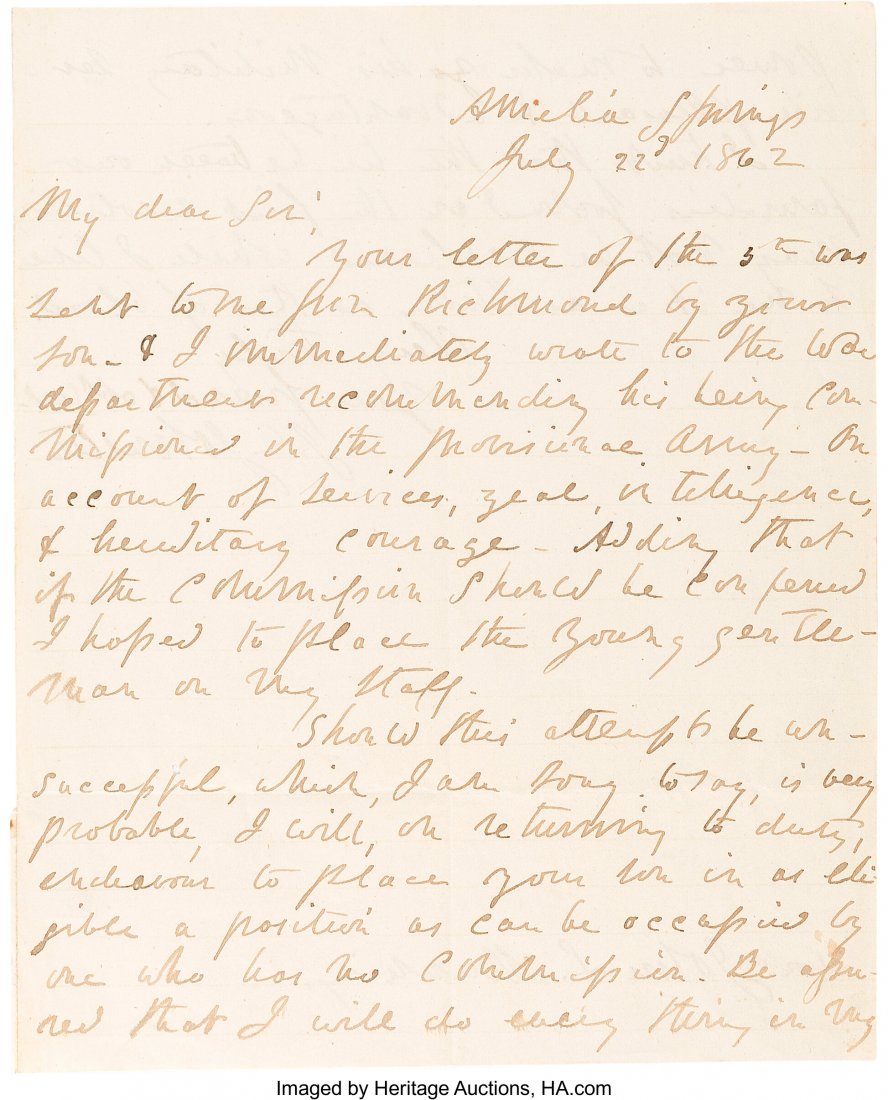 Amelia Springs
July 22d 1862
My dear Sir,
Your letter of the 5th was
sent to me from Richmond by your
son - & I immediately wrote to the War
department recommending his being com-
missioned in the provisional Army - On
account of services, zeal, intelligence,
& hereditary courage - Adding that
if the commission should be conferred
I hoped to place the young gentle-
man on my staff.
Should this attempt be un-
successful, which, I am sorry to say, is very
probable, I will, on returning to duty,
endeavour to place your son in as eli-
gible a position as can be occupied by
one who has no commission. Be assu-
red that I will do every thing in my
Imaged by Heritage Auctions, HA.com